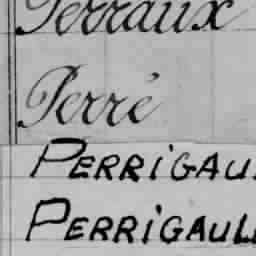 Perraux
Perré
PERRIGAU
PERRIGAUL